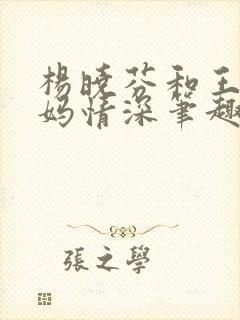 楊曉芬和王
媽情深筆趣
張之學